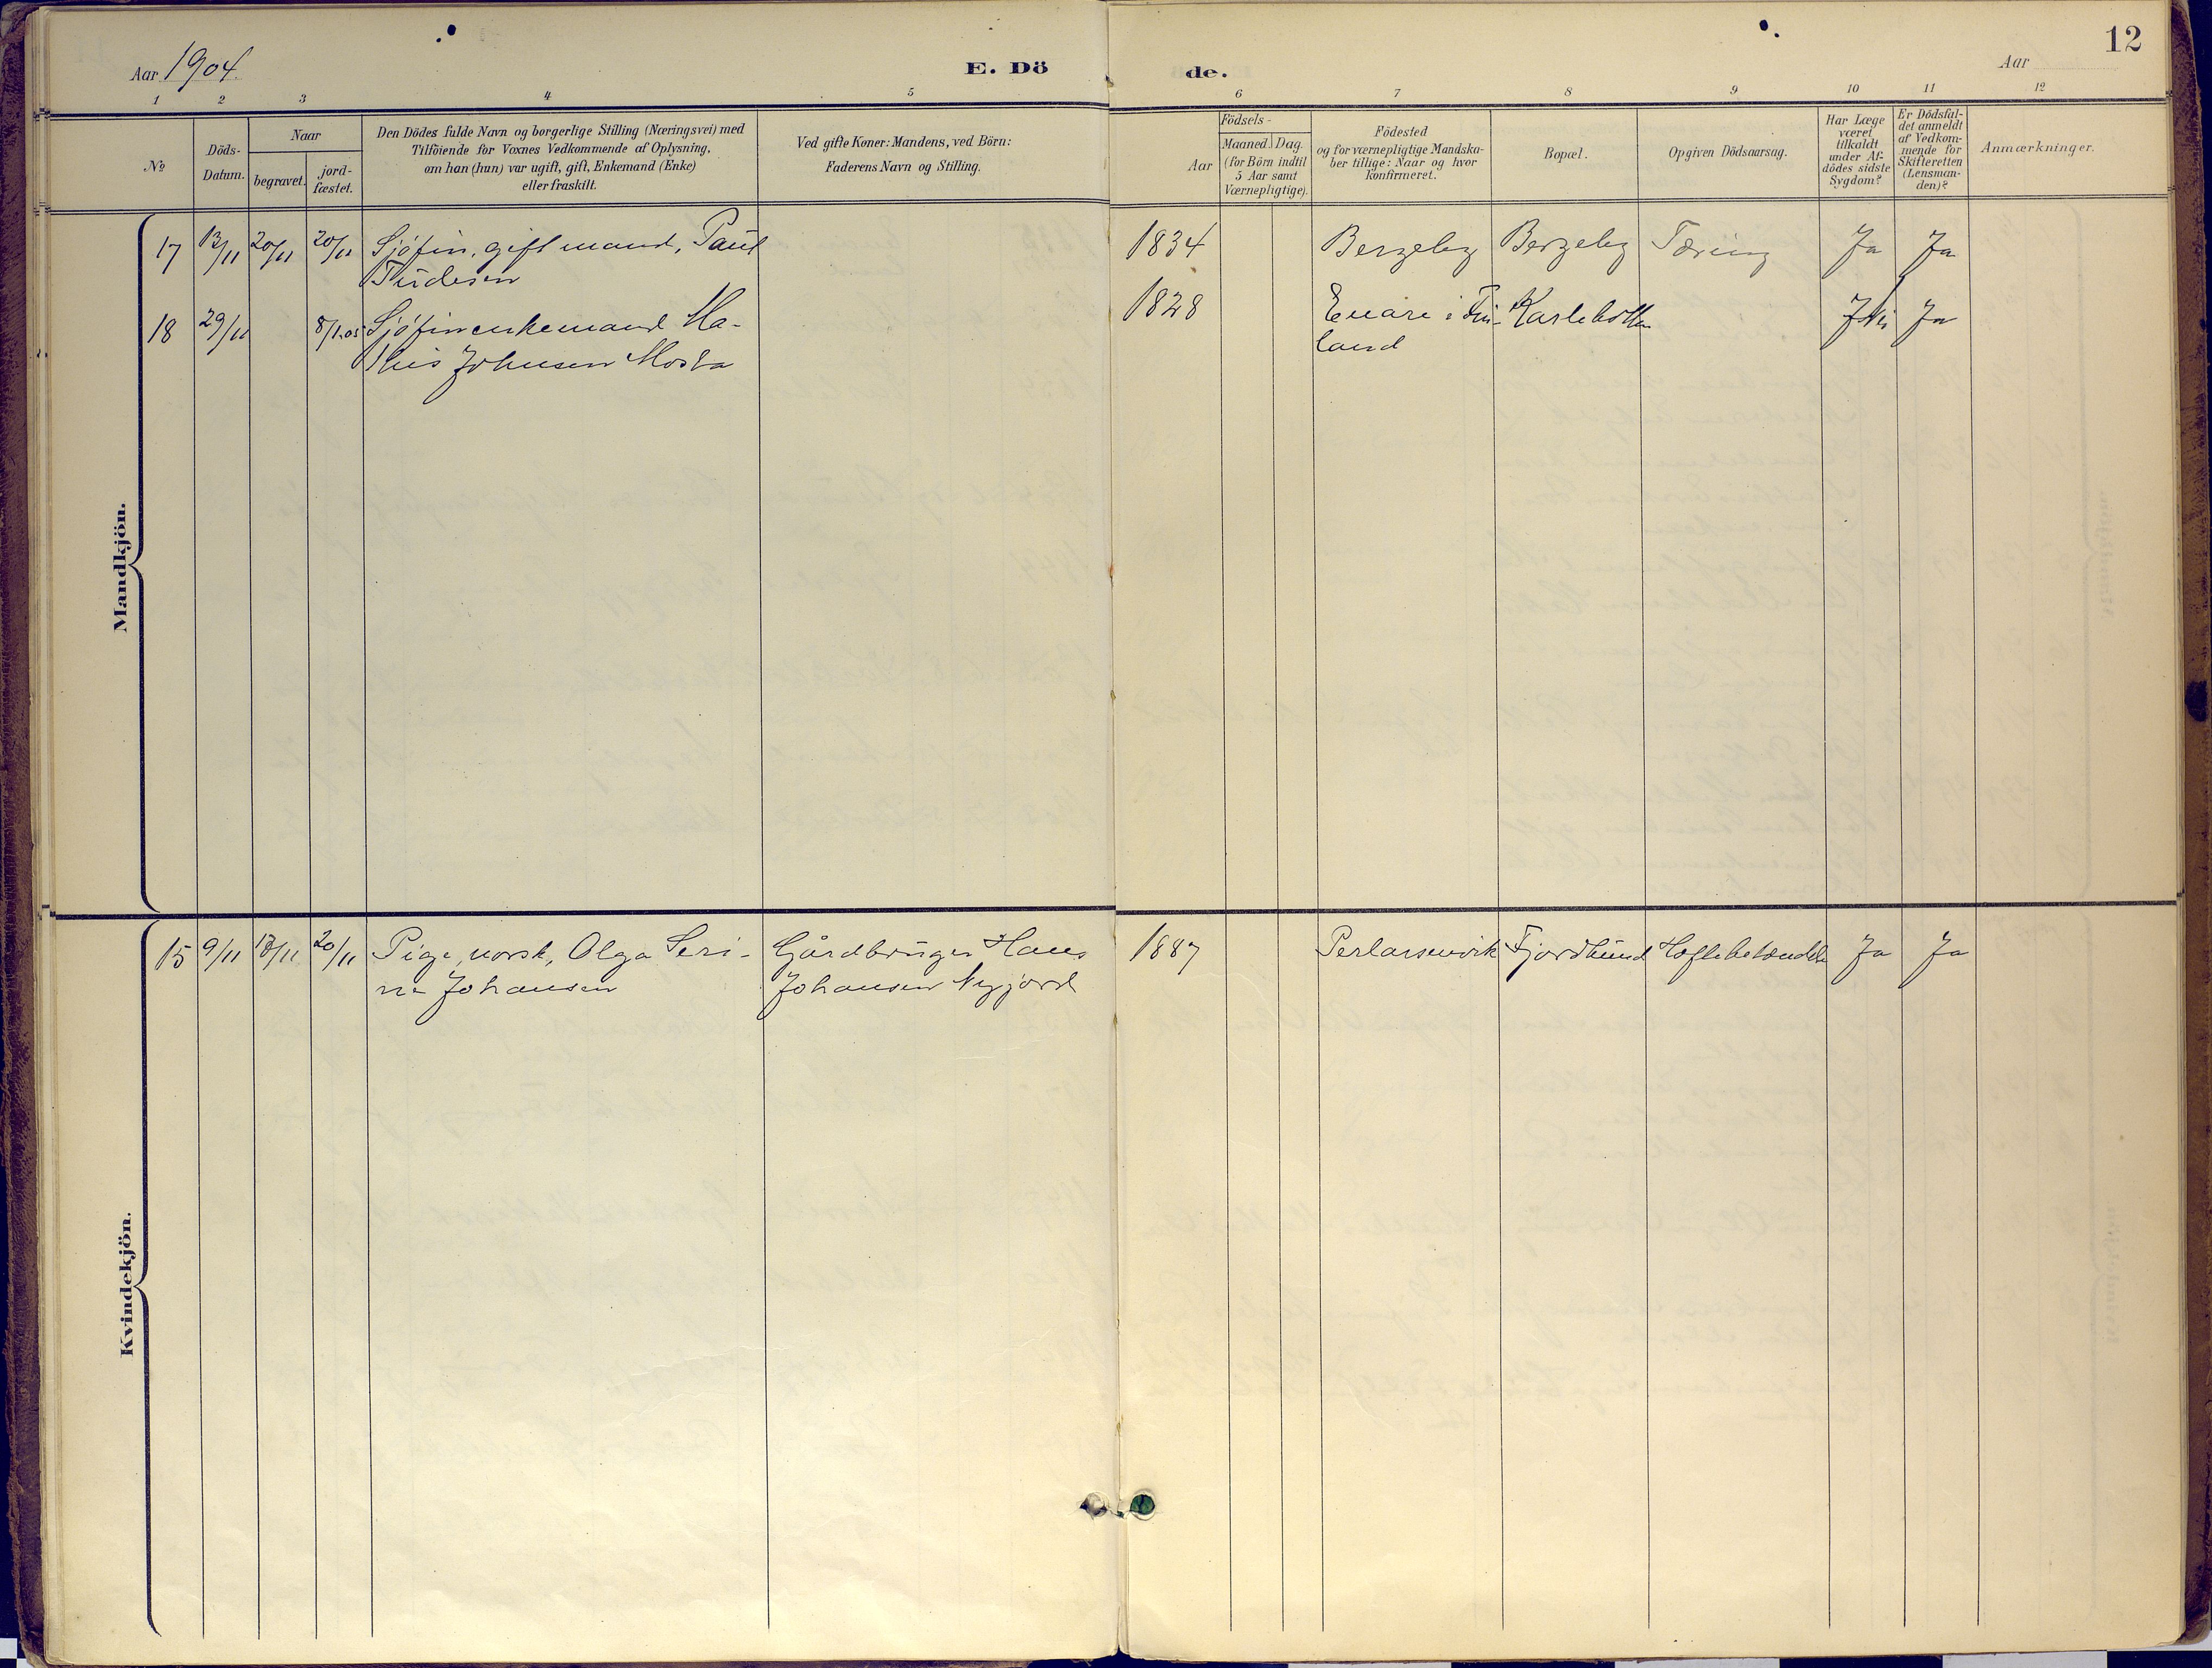 12
Aar 1904.
E. Dö de.
Aar
1 2 3 4 5 6 7 8 9 10 11 12
No
Döds-
Datum.
Naar
begravet.
jord-
fæstet.
Den Dödes fulde Navn og borgerlige Stilling (Næringsvei) med
Tilföiende for Voxnes Vedkommende af Oplysning,
om han (hun) var ugift, gift, Enkemand (Enke)
eller fraskilt.
Ved gifte Koner: Mandens, ved Börn:
Faderens Navn og Stilling.
Födsels-
Aar
Maaned. Dag.
(for Börn indtil
5 Aar samt
Værnepligtige).
Födested
og for værnepligtige Mandska-
ber tillige: Naar og hvor
konfirmeret.
Bopæl.
Opgiven Dödsaarsag.
Har Læge
været
tilkaldt
under Af-
dödes sidste
Sygdom?
Er Dödsfal-
det anmeldt
af Vedkom-
mende for
Skifteretten
(Lensman-
den)?
Anmærkninger.
Mandkjön.
17 13/11 20/11 20/11 Sjöfin, gift mand, Paul 1834 Bergeby Bergeby Tæring Ja Ja
18 29/11 8/1.05 Sjöfin enkemand Ma- 1828 Enare i Fin- Karlebotten Nei Ja
this Johnsen land
Kvindekjön.
15 9/11 20/11 Pige, norsk, Olga Seri- Gårdbruger Hans 1887 Perlarsenvik Fjordbund Hoftebetændelse Ja Ja
ne Johansen Johansen Nyjord